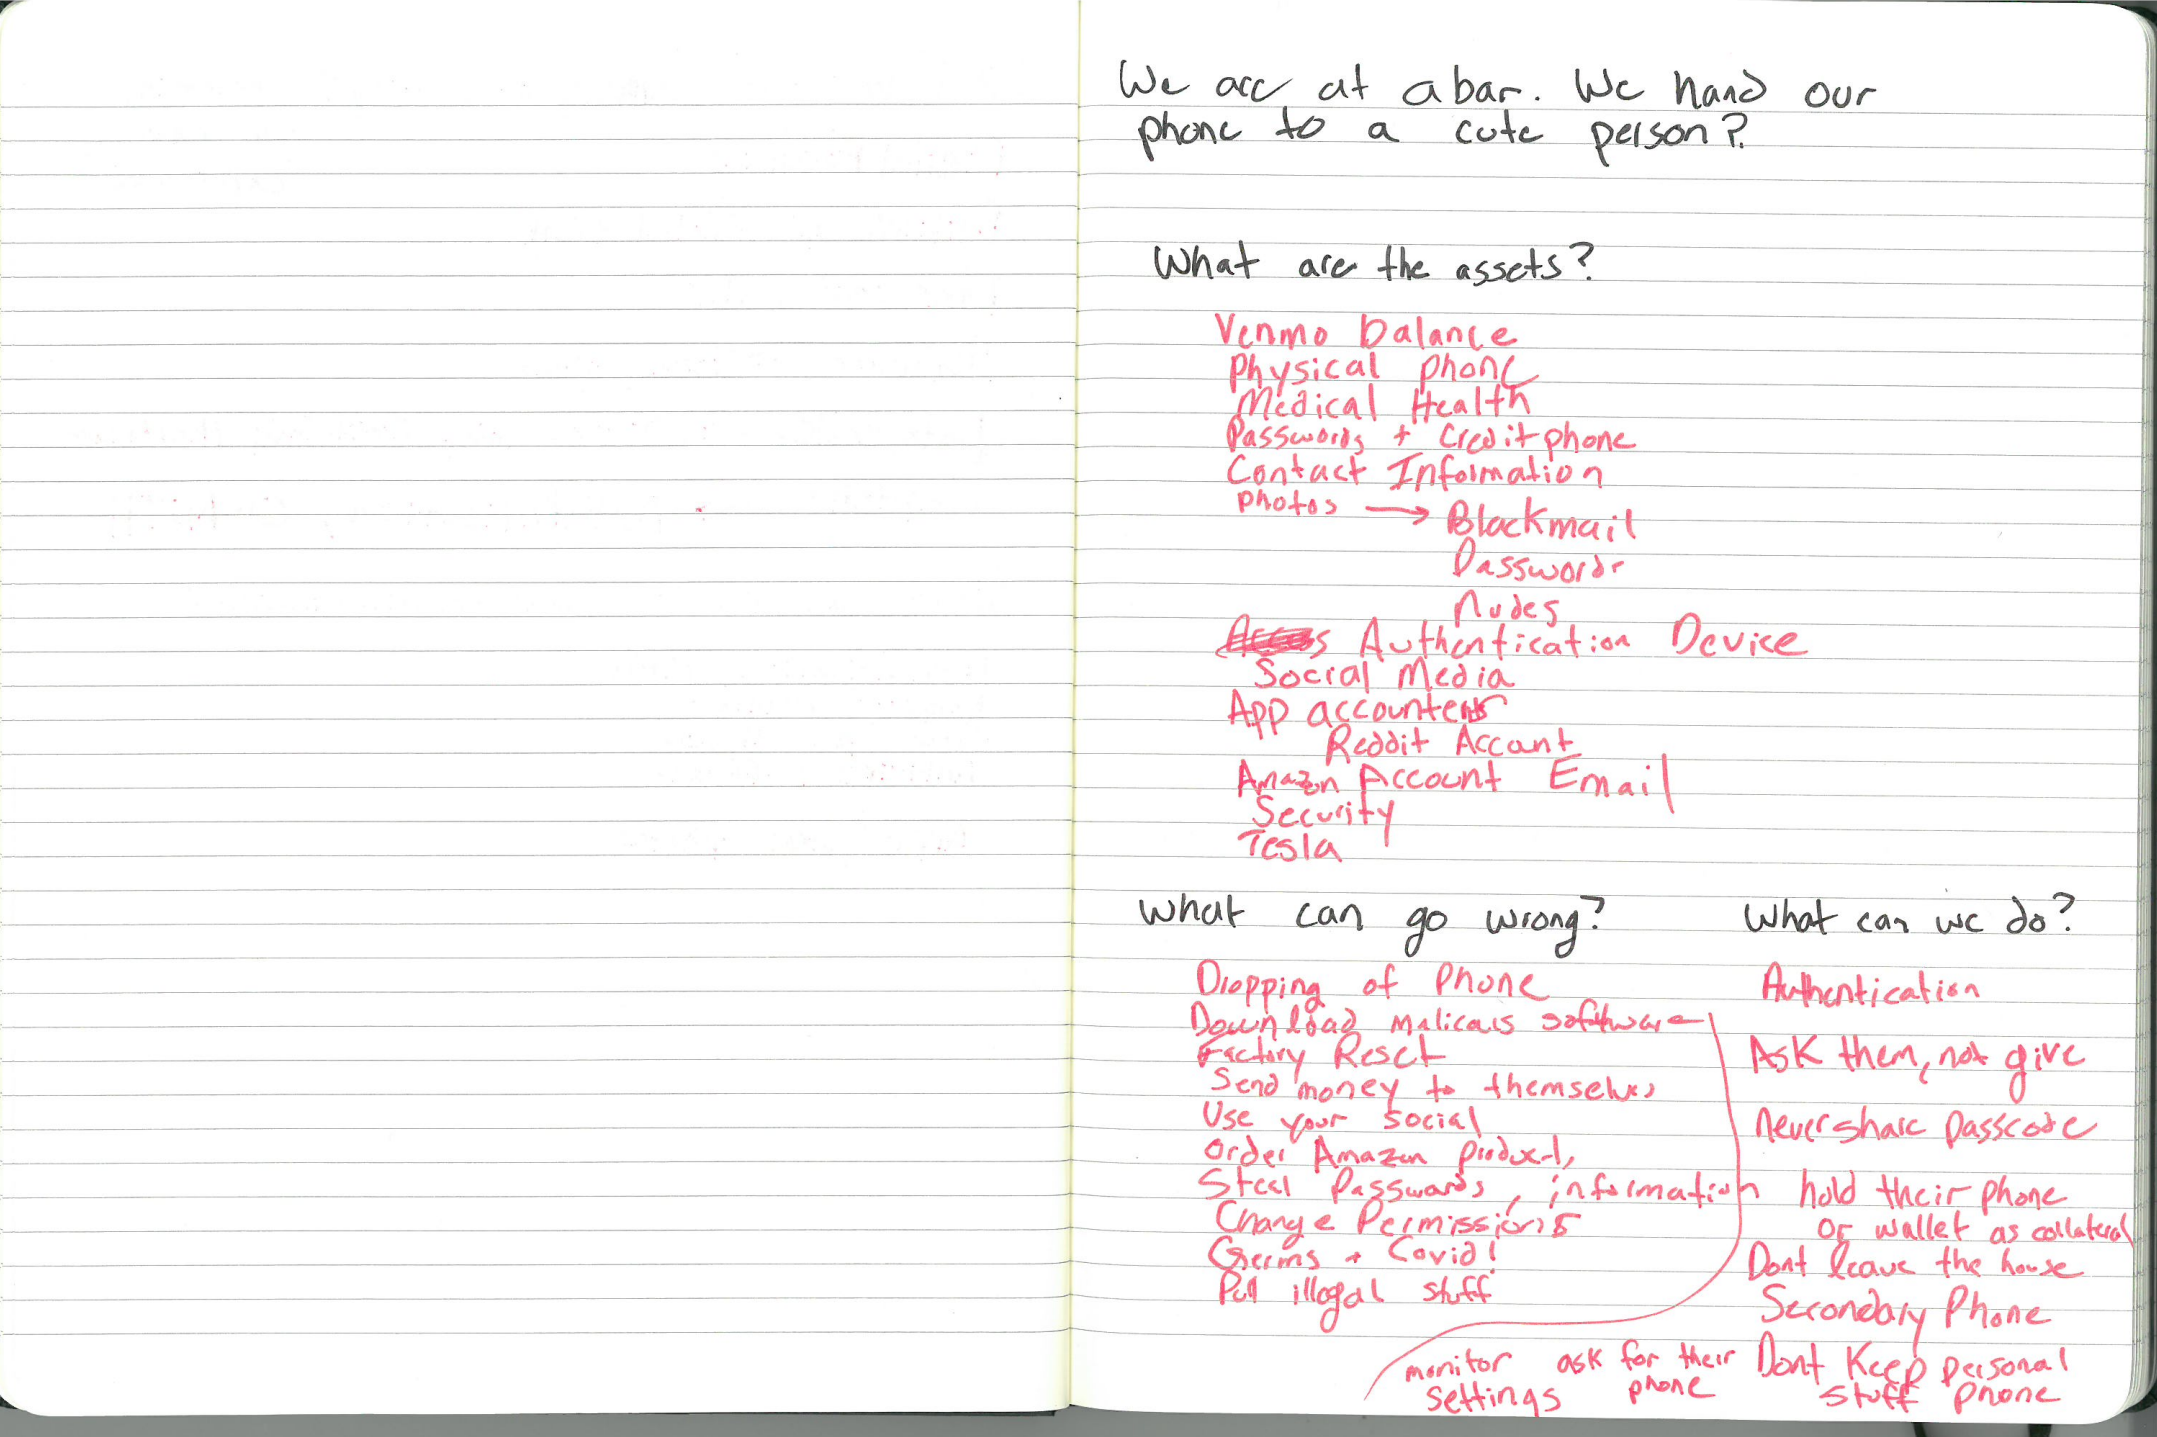 We are at a bar. We hand our
phone to a cute person?
What are the assets?
Venmo balance
Physical phone
Medical Health
Passwords + Creditphone
Contact Information
photos → Blackmail
Passwords
Nudes
Access Authentication Device
Social Media
App accounters
Reddit Accant
Amazon Account Email
Security
Tesla
What can go wrong?
Dropping of Phone
Download malicais software
Factory Reset
Send money to themselves
Use your social
Order Amazon product,
Steal Passwords, information
Change Permissions
Germs + Covid!
Pull illegal stuff
What can we do?
Authentication
Ask them, not give
Never share passcode
hold their phone
or wallet as collateral
Dont leave the house
Secondary Phone
Dont Keep personal
stuff phone
ask for their
phone
monitor
settings